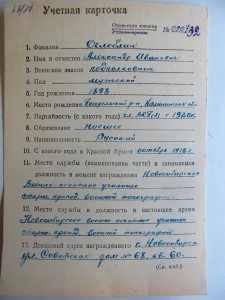 Учетная карточка
Орденская книжка
№ 020732
1. Фамилия Оглоблин
2. Имя и отчество Александр Иванович
3. Воинское звание подполковник
4. Пол мужской
5. Год рождения 1898
6. Место рождения
7. Партийность (с какого года) чл. ВКП(б) с 1920г.
8. Образование высшее
9. Национальность Русский
10. С какого года в Красной Армии октября 1918 г.
11. Место службы (наименование части) и занимаемая
должность в момент награждения Новосибирское
Военно-пехотное училище
старш. препод. военной топографии
12. Место службы и должность в настоящее время
Новосибирское военно-пехотное училище
старш. препод. военной топографии
13. Домашний адрес награжденного г. Новосибирск
ул. Советская дом № 68, кв. 60.
(См. на об.)